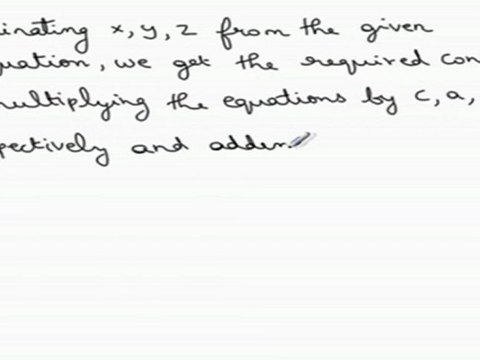 inating x, y, z from the given
uation, we get the required con
multiplying the equations by c, a,
pectively and adden